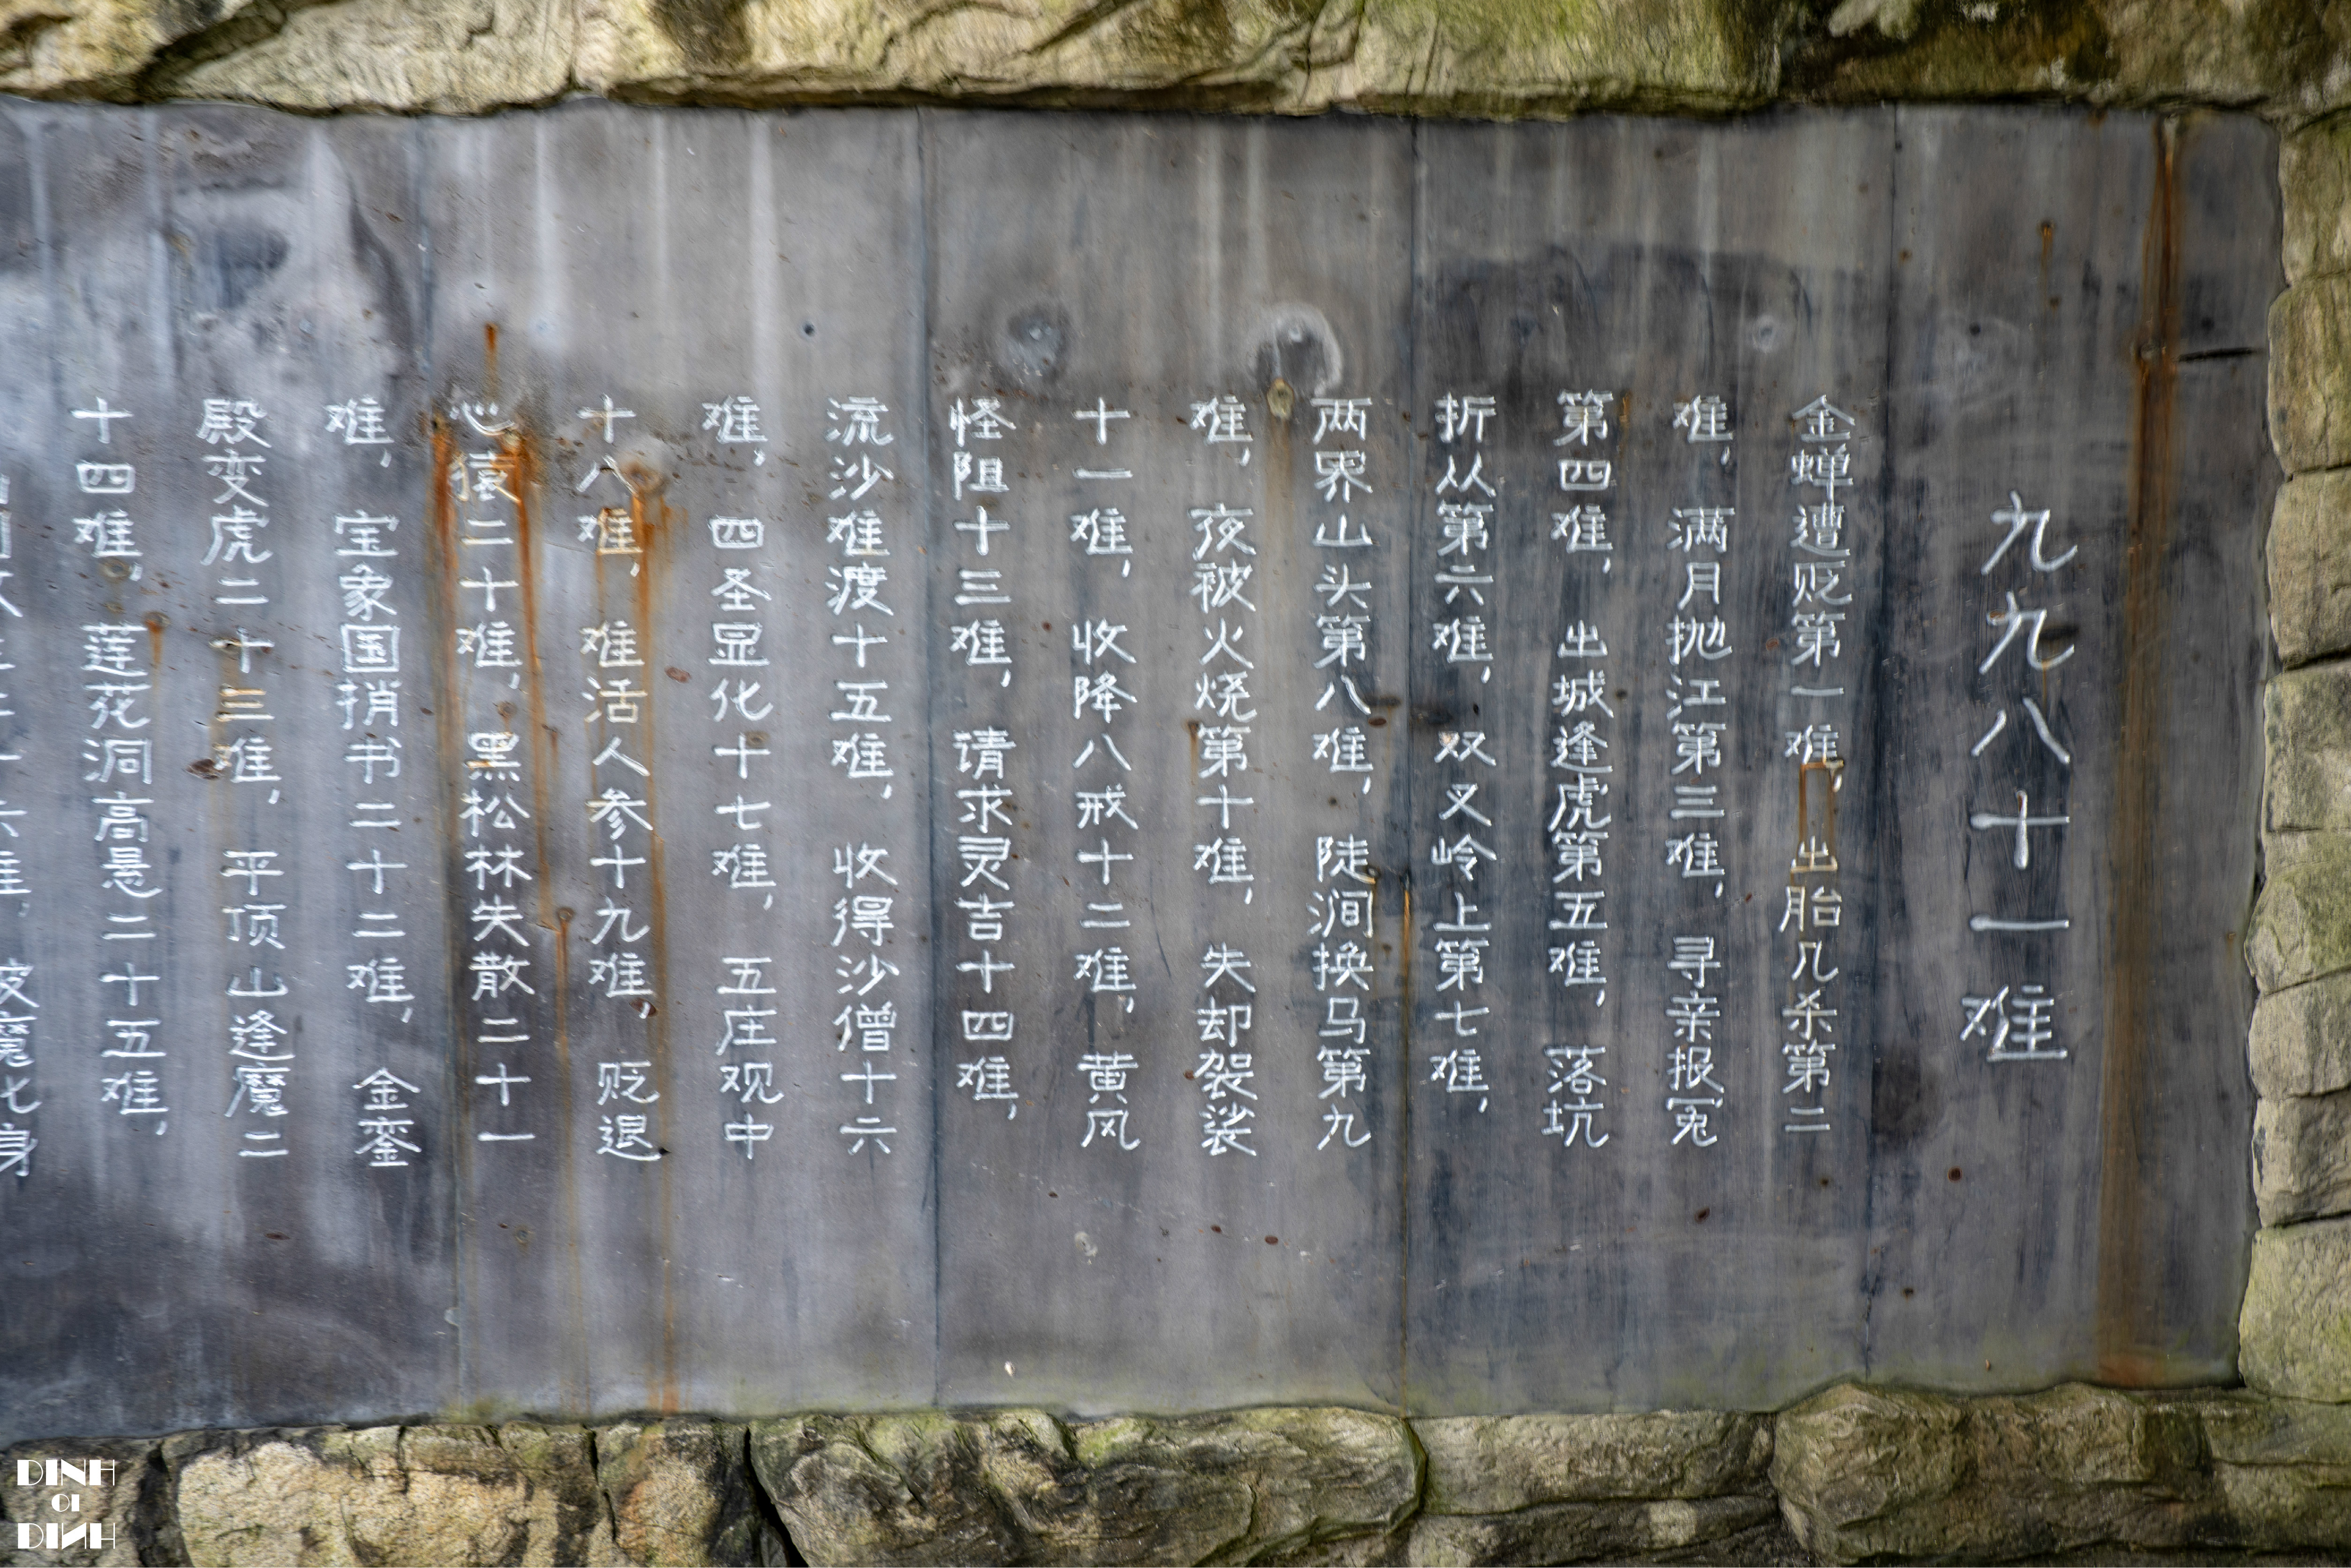 九九八十一难
金蝉遭贬第一难，出胎几杀第二
难，满月抛江第三难，寻亲报冤
第四难，出城逢虎第五难，落坑
折从第六难，双叉岭上第七难，
两界山头第八难，陡涧换马第九
难，夜被火烧第十难，失却袈裟
十一难，收降八戒十二难，黄风
怪阻十三难，请求灵吉十四难，
流沙难渡十五难，收得沙僧十六
难，四圣显化十七难，五庄观中
十八难，难活人参十九难，贬退
心猿二十难，黑松林失散二十一
难，宝象国捎书二十二难，金銮
殿变虎二十三难，平顶山逢魔二
十四难，莲花洞高悬二十五难，
DINH
OI
DINH